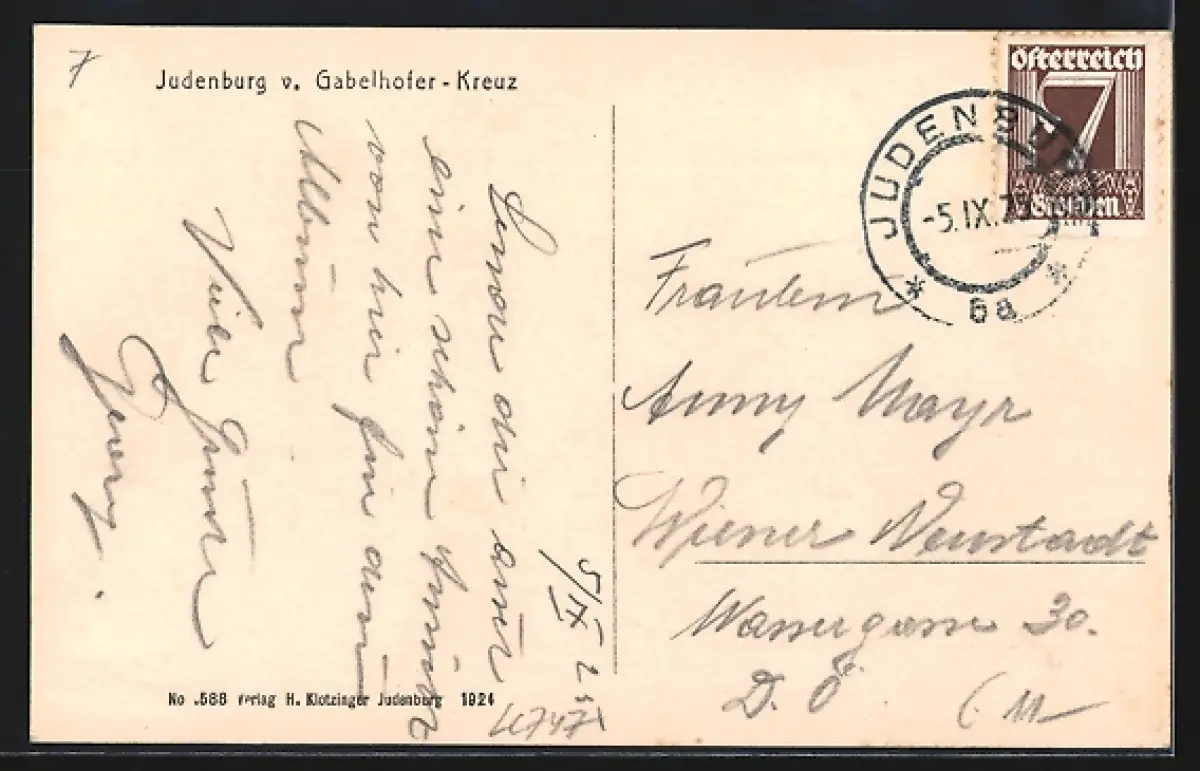 7
Judenburg v. Gabelhofer-Kreuz
österreich
7
Groschen
JUDENBURG
-5.IX.2
* 6a *
5/IX 25
Sende dir anbei
einen schönen Gruß
von hier für dein
Album
Viele Grüße
Georg.
Fräulein
Anny Mayr
Wiener Neustadt
Wassergasse 30.
D. Ö.
No .588 Verlag H. Klotzinger Judenburg 1924